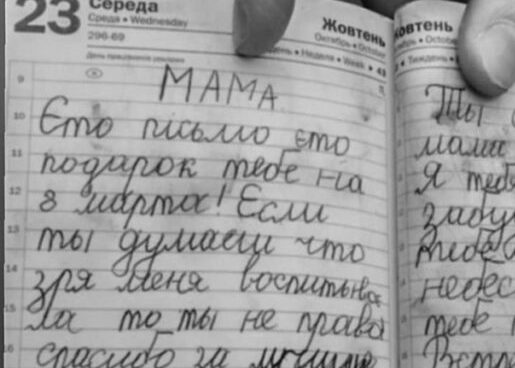 23 Середа
Среда • Wednesday
296-69
Жовтень
Октябрь • October
Неделя • Week • 43
МАМА
Єто письмо єто
подарок тебе на
8 марта! Если
ты думаеш что
зря меня воспитыва
ла то ты не права
спасибо за
9
10
11
12
13
14
15
16
Жовтень
October
Тиждень
Ты
мама
Я тебя
тебе
небес
тебе